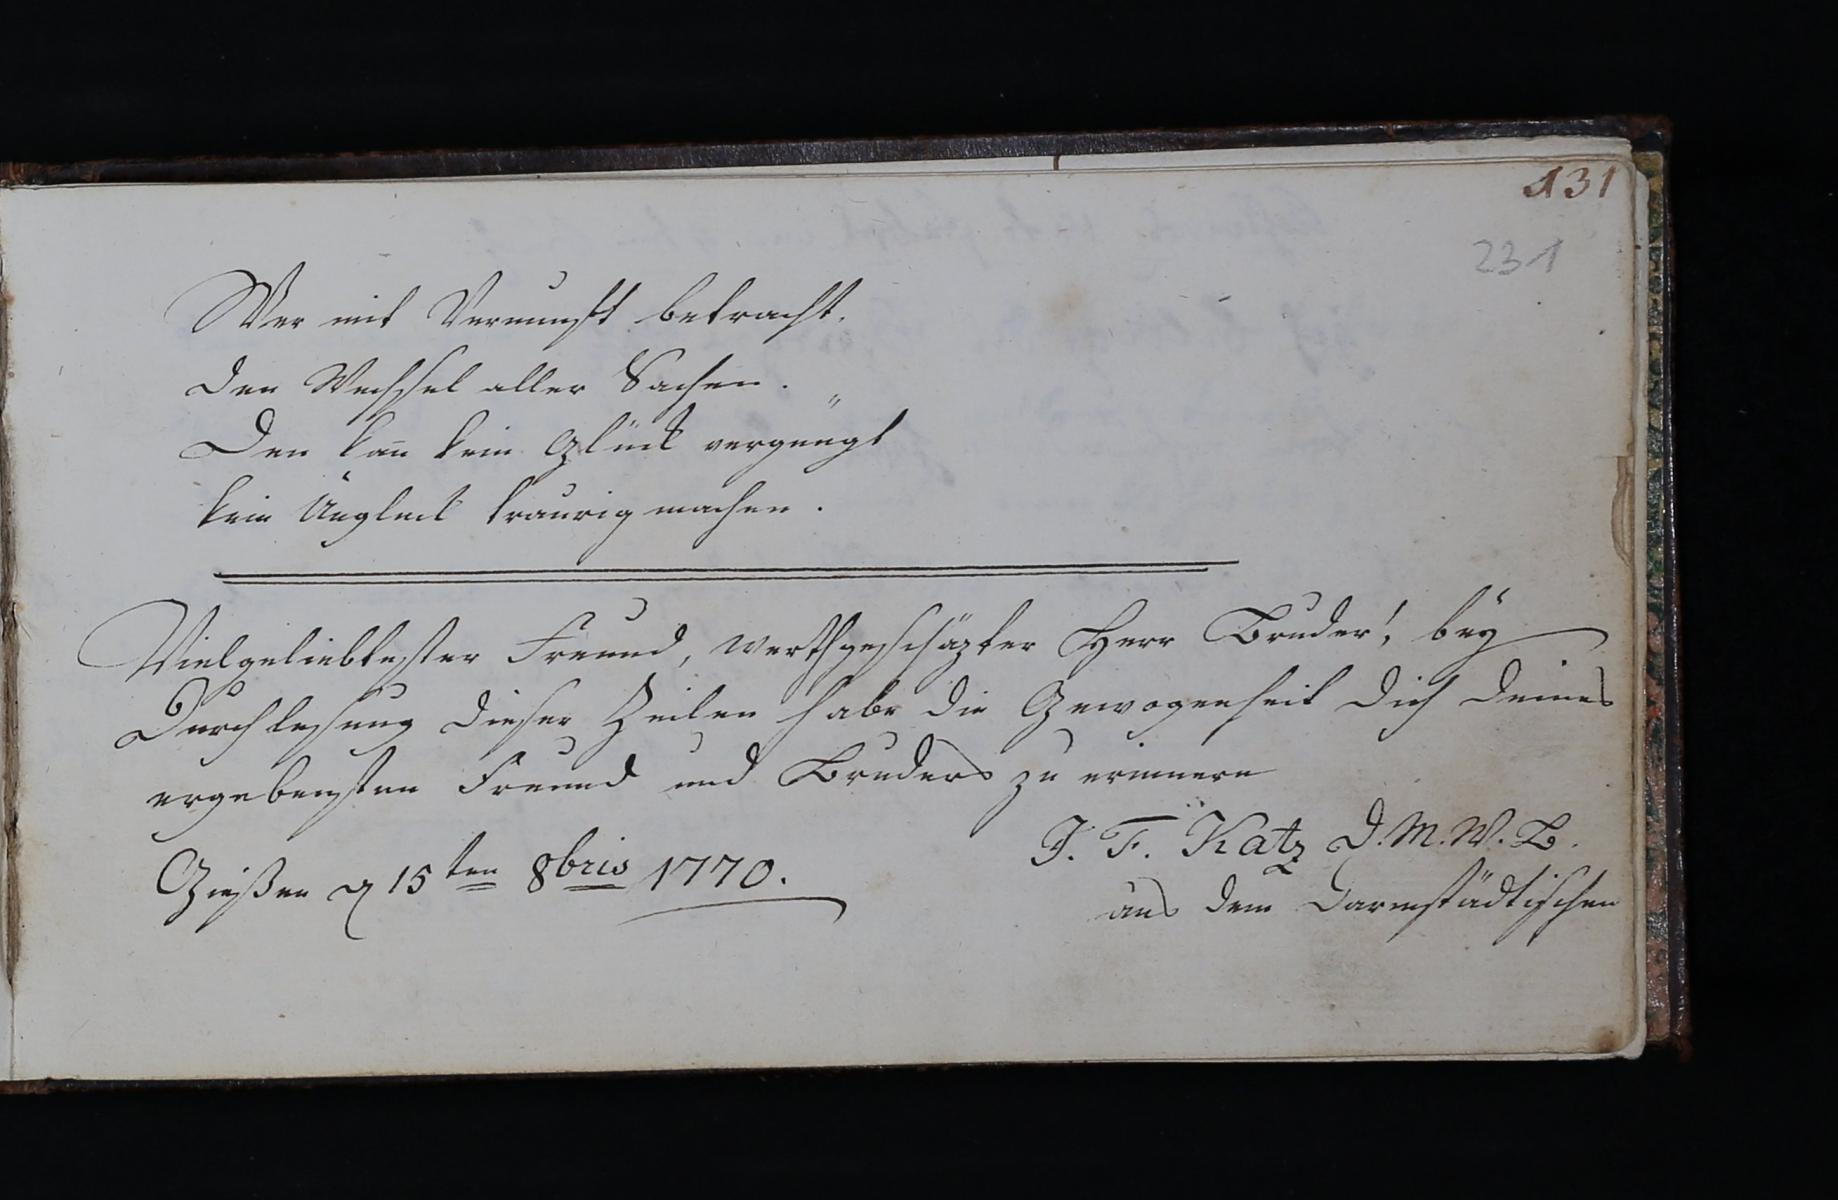 131
231
Wer mit Vernunft betracht.
den Wechsel aller Sachen.
Den kan̄ kein Glück vergnügt
kein Unglück traurig machen.
Vielgeliebtester Freund, werthgeschäzter Herr Bruder!, bey
Durchlesung dieser Zeilen habe die Gewogenheit dich deines
ergebensten Freund und Bruders zu erinnern
J. F. Katz D. M. W. B.
aus dem Darmstädtischen
Gießen d 15ten 8bris 1770.